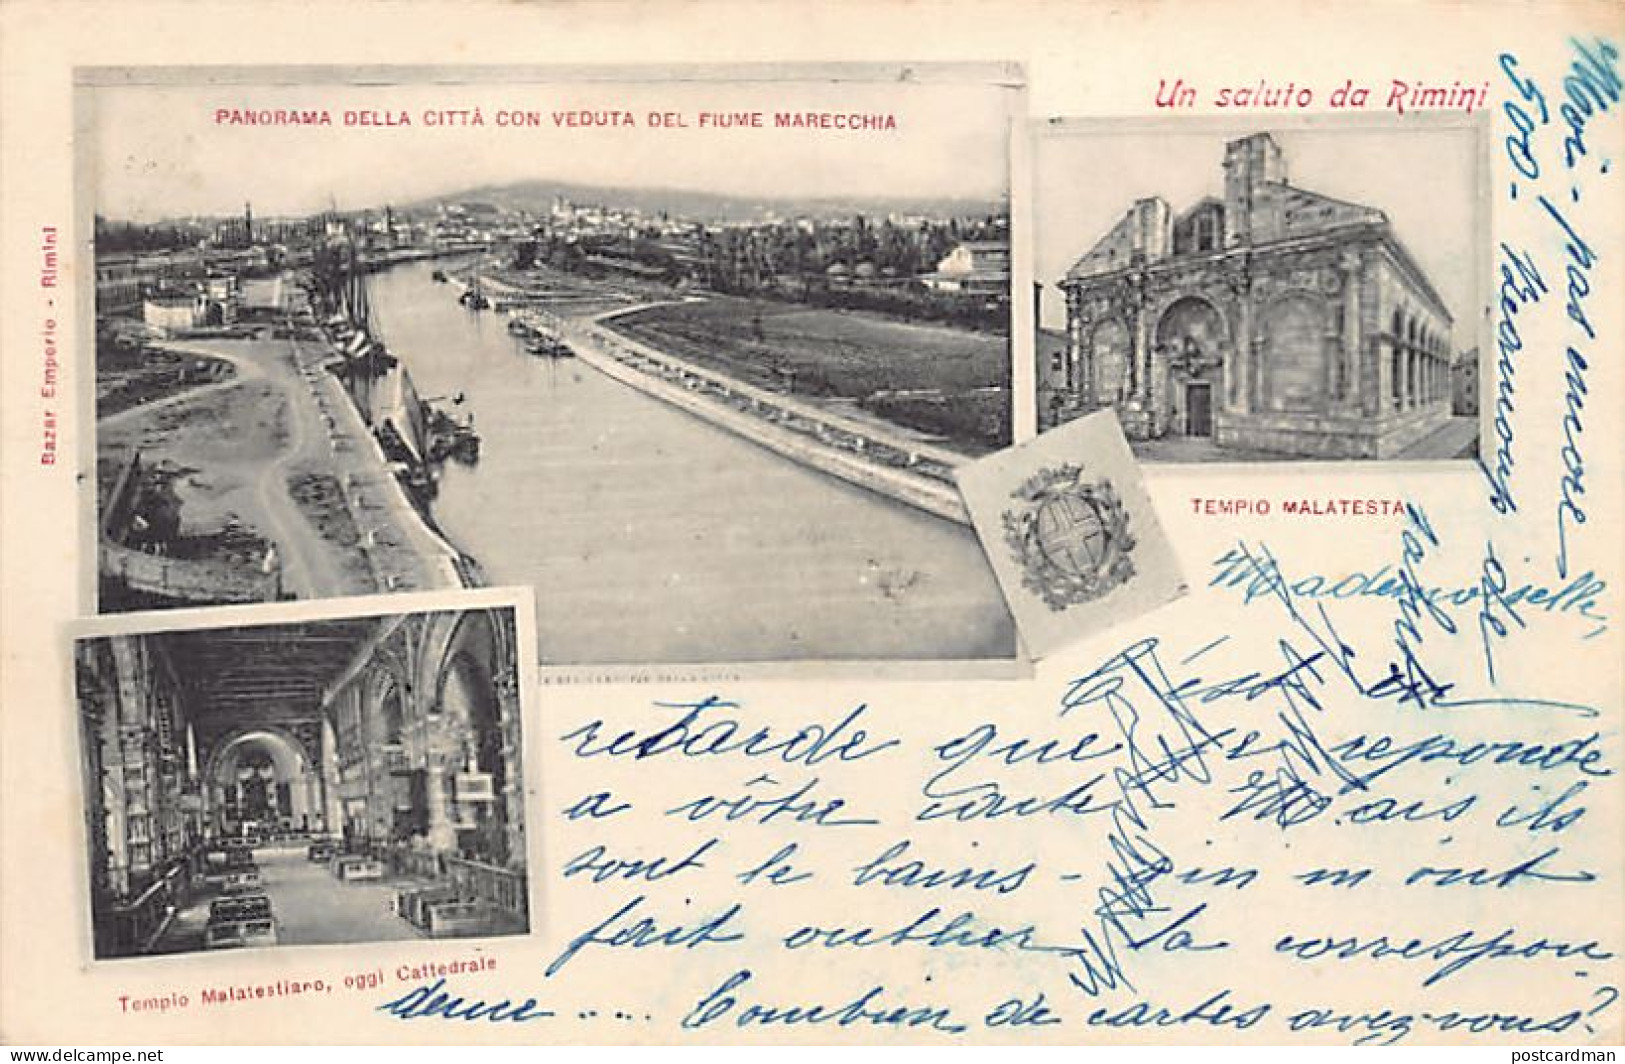 Un saluto da Rimini
PANORAMA DELLA CITTÀ CON VEDUTA DEL FIUME MARECCHIA
Bazar Emporio - Rimini
TEMPIO MALATESTA
Tempio Malatestiano, oggi Cattedrale
Mademoiselle,
C'ést en
retarde que je reponde
a vôtre carte. Mais ils
sont le bains - in m'ont
fait oublier la correspon
dence .... Combien de cartes avez-vous?
Moi - pas encore
500 - Beaucoup de
salut
delcampe.net
postcardman